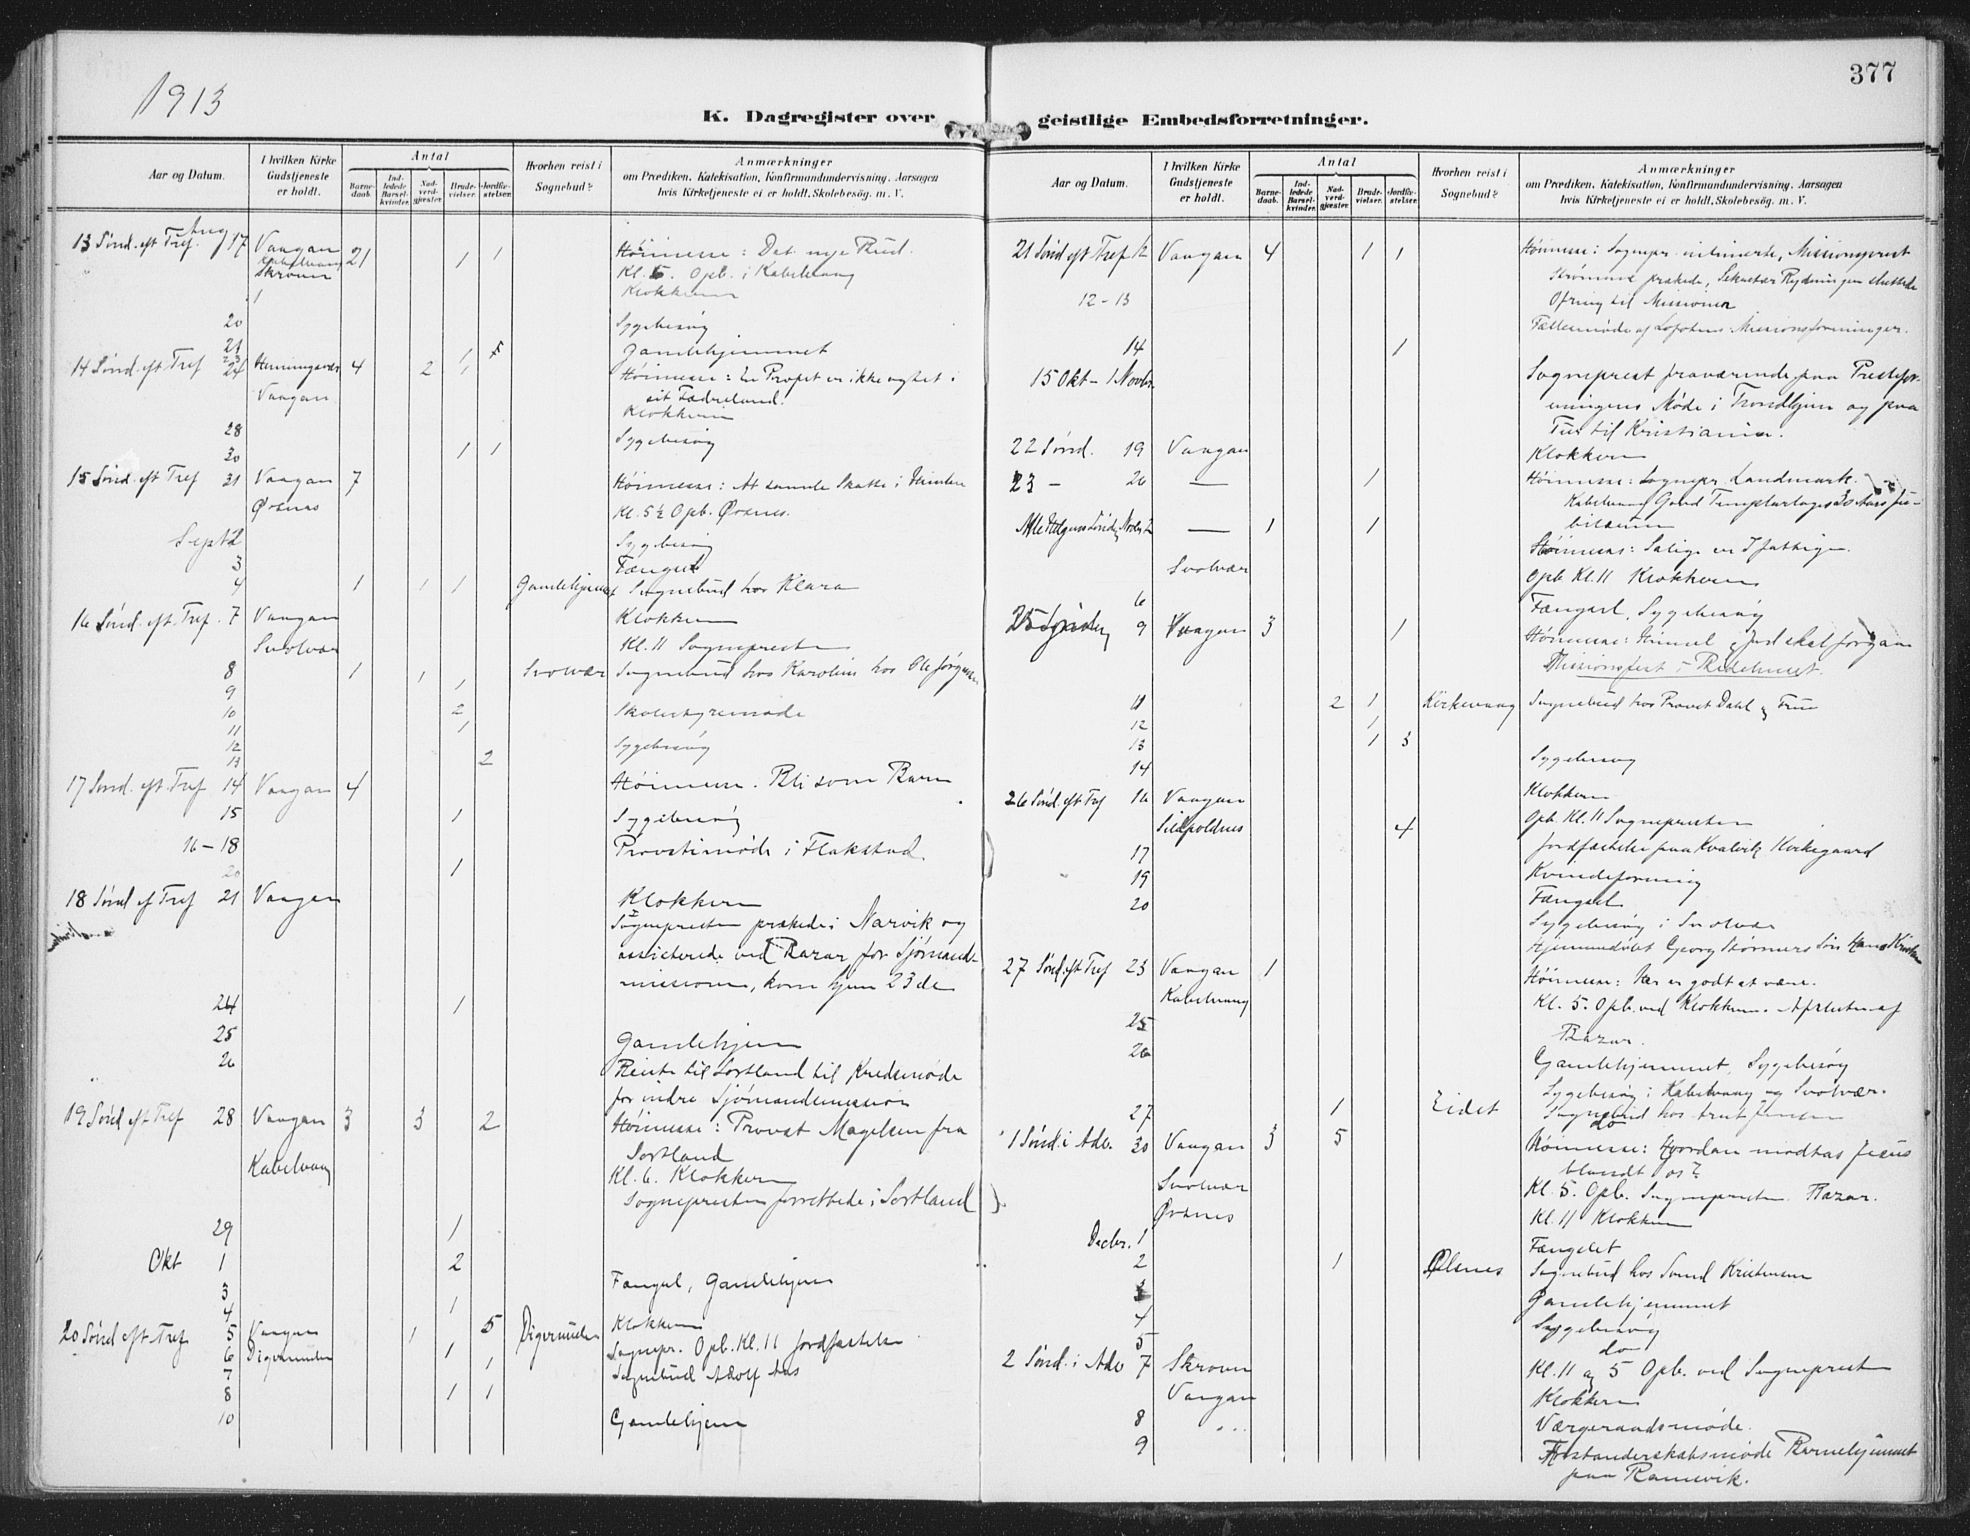 377
1913
K. Dagregister over geistlige Embedsforretninger.
Aar og Datum.
I hvilken Kirke Gudstjeneste er holdt.
Antal
Barnedaab.
Indledede Barselkvinder.
Nadverdgjæster.
Brudevielser.
Jordfæstelser.
Hvorhen reist i Sognebud?
Anmærkninger
om Prædiken, Katekisation, Konfirmandundervisning, Aarsagen
hvis Kirketjeneste ei er holdt, Skolebesög. m. V.
13 Sönd. eft Tref. Aug 17 Vaagan 21 1 1 Höimesse: Det nye Bud.
Kabelvaag Kl. 5. Opb. i Kabelvaag
Skroven Klokkeren
20 Sygebesög
21 Gamlehjemmet
14 Sönd. eft Tref 24 Henningsvær 4 2 1 Höimesse: En Profet er ikke agtet i
Vaagan sit Fædreland.
Klokkeren
28 Sygebesög
30 1 1
15 Sönd. eft Tref 31 Vaagan 7 Höimesse: At samle Skatte i Himlen
Ørsnes Kl. 5½ Opb. Ørsnes.
Sept 2 Sygebesög
3 Fængsel
4 1 1 1 Gamlehjemmet Sognebud hos Klara
16 Sönd. eft. Tref. 7 Vaagan Klokkeren
Svolvær Kl. 11 Sognepresten
8 1 1 1 Svolvær Sognebud hos Karoline hos Ole Jörgensen
9
10 2 Skolestyremöde
11 1
12 Sygebesög
13 2
17 Sönd. eft. Tref 14 Vaagan 4 Höimesse. Bli som Barn
15 1 Sygebesög
16-18 Provstimöde i Flakstad.
20 1
18 Sönd ef Tref 21 Vaagan Klokkeren
Sognepresten prækede i Narvik og
assisterede ved Bazar for Sjömands-
missionen, kom hjem 23de
24 1
25 Gamlehjem
26 Reiste til Sortland til Kredsmöde
for indre Sjömandsmission
19 Sönd eft Tref 28 Vaagan 3 3 2 Höimesse: Provst Magelsen fra
Sortland
Kabelvaag Kl. 6. Klokkeren
Sognepresten forrettede i Sortland
29 1
Okt 1 2
3 Fængsel, Gamlehjem
4 1
20 Sönd eft Tref 5 Vaagan 5 Digermulen Klokkeren
6 Digermulen 1 1 Sognepr. Opb. Kl. 11 Jordfæstelse
7 1 Sognebud Adolf Aas
8 1 1
10 Gamlehjem
Aar og Datum.
I hvilken Kirke Gudstjeneste er holdt.
Antal
Barnedaab.
Indledede Barselkvinder.
Nadverdgjæster.
Brudevielser.
Jordfæstelser.
Hvorhen reist i Sognebud?
Anmærkninger
om Prædiken, Katekisation, Konfirmandundervisning, Aarsagen
hvis Kirketjeneste ei er holdt, Skolebesög. m. V.
21 Sönd eft Tref 12 Vaagan 4 1 1 Höimesse: Sognepr. intimerte, Missionsprest
Strömme prækede, Sekretær Rydningen sluttede
12-13 Ofring til Missionen
Fællesmöde af Lofotens Missionsforeninger.
14 1
15 Okt - 1 Novbr. Sogneprest fraværende paa Prestefor-
eningens Möde i Trondhjem og paa
Tur til Kristiania.
22 Sönd. 19 Vaagan Klokkeren
23 - 26 — 1 Höimesse: Sognepr. Landmark.
Kabelvaag Good Templarlags 30 Aars Ju-
bilæum
Alle Helgens Söndag Novbr 2 — 1 1 Höimesse: Salige er I fattige.
Svolvær Opb Kl. 11 Klokkeren
6 Fængsel, Sygebesög
25 Söndag 9 Vaagan 3 1 Höimesse: Himmel og Jord skal forgaa
Missionsfest i Bedehuset.
11 2 1 Kirkevaag Sognebud hos Provst Dahl og Frue
12 1
13 1 3
14 Sygebesög
26 Sönd. eft Tref 16 Vaagan Klokkeren
Sildpoldnes 4 Opb. Kl. 11 Sognepresten
Jordfæstelse paa Kvalvik Kirkegaard
17 Kvindeforening
19 Fængsel
20 Sygebesög i Svolvær
Hjemmedöbt Georg Störmers Sön Hans
27 Sönd. eft Tref 23 Vaagan 1 Höimesse: Her er godt at være.
Kabelvaag Kl. 5. Opb. ved Klokkeren. Afslutn af
Bazar.
25 Gamlehjemmet, Sygebesög
26 Sygebesög i Kabelvaag og Svolvær.
27 1 Eidet Sognebud hos Jensen
do
1 Sönd. i Adv. 30 Vaagan 3 5 Höimesse: Hvordan modtas Jesus
blandt os?
Svolvær Kl. 5. Opb. Sognepresten. Bazar.
Ørsnes Kl. 11 Klokkeren
Decbr. 1 Fængslet
2 1 Ølsnes Sognebud hos Kristensen
3 Gamlehjemmet
4 Sygebesög
5 do
2 Sönd. i Adv 7 Skroven Kl. 11 og 5 Opb. ved Sognepresten
Vaagan Klokkeren
8 Værgeraadsmöde.
9 Forstanderskabsmöde Barnehjemmet
paa Ramsvik.